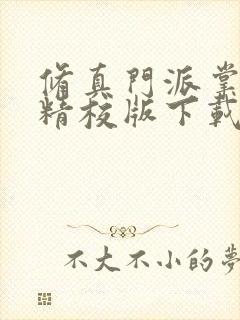 脩真門派掌
精校版下載
不大不小的夢